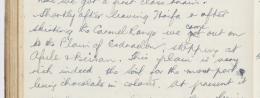 had we got a first class train.
Shortly after leaving Haifa & after
skirting the Carmel Range we came out on
to the Plain of Esdraelon, stopping at
Afule & Beisan. This plain is very
rich indeed the soil for the most part
being chocolate in colour, at present it